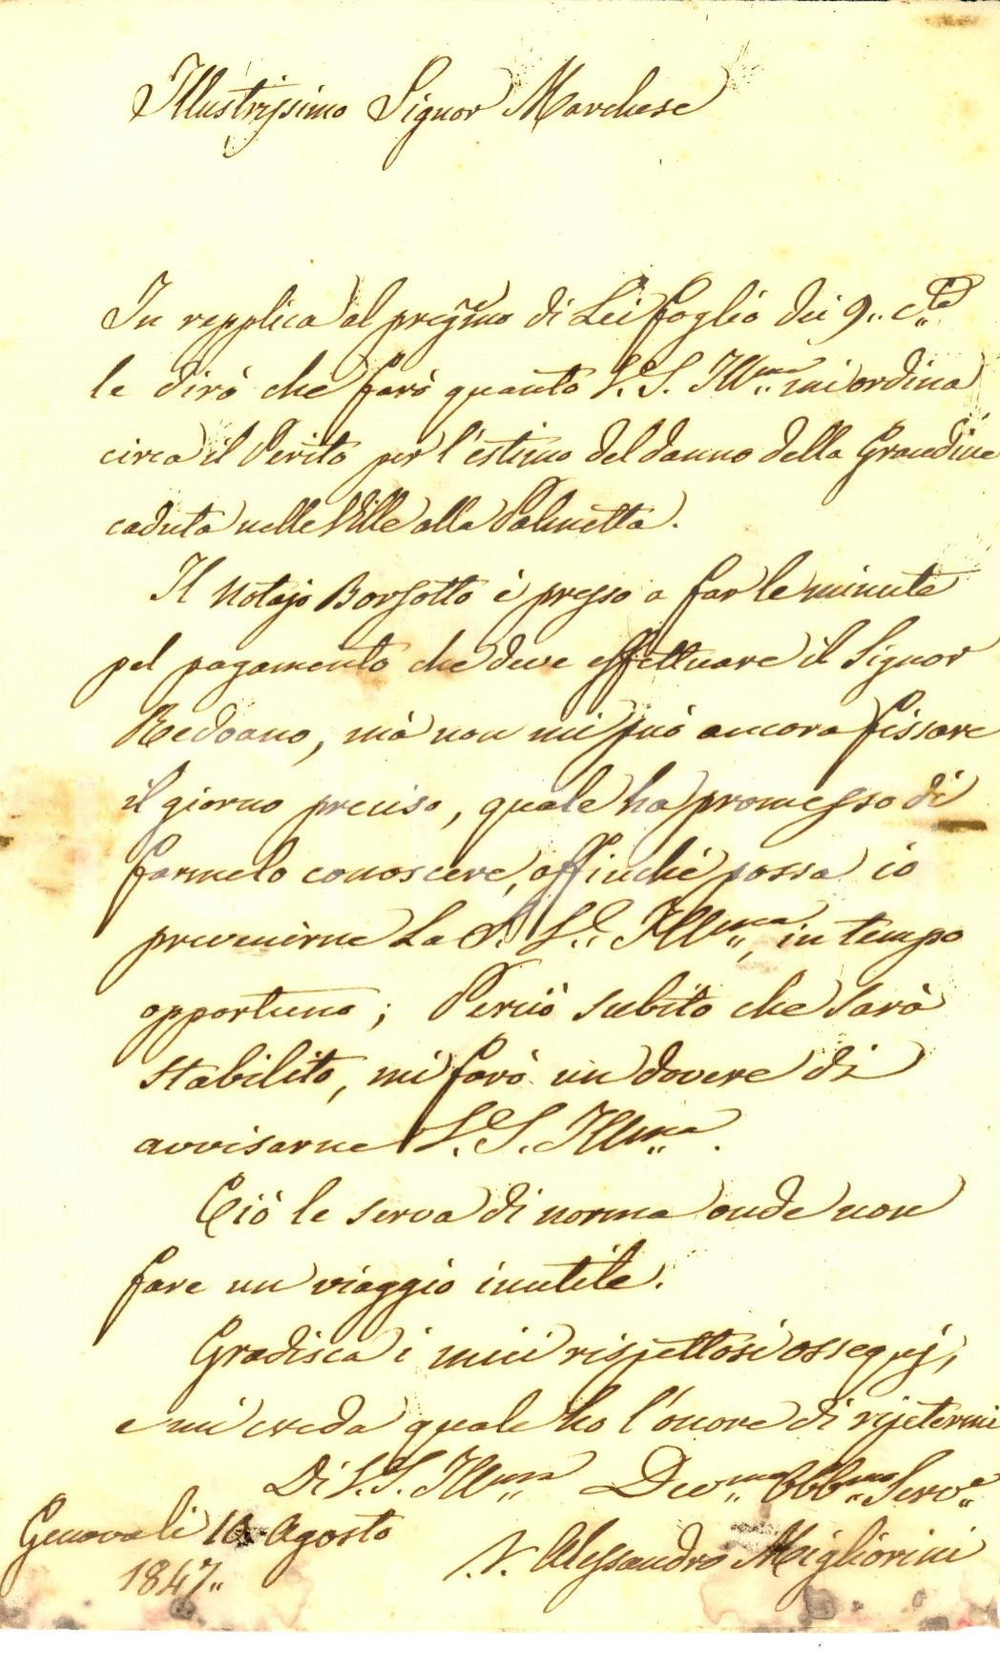 Illustrissimo Signor Marchese
In repplica al preg.mo di Lei foglio dei 9,, c.te
le dirò che farò quanto S. S. Ill.ma mi ordina
circa il Perito per l'estimo del danno della Grandine
caduta nelle Ville alla Palmetta.
Il Notajo Borsotto è presso a far le minute
pel pagamento che deve effettuare il Signor
Redoano, mà non mi può ancora fissare
il giorno preciso, quale ha promesso di
farmelo conoscere, affinchè possa io
prevenirne La S. S. Ill.ma, in tempo
opportuno; Perciò subito che sarà
stabilito, mi farò un dovere di
avvisarne S. S. Ill.ma.
Ciò le serva di norma onde non
fare un viaggio inutile.
Gradisca i miei rispettosi ossequj,
e mi creda quale ho l'onore di ripetermi
Di S. S. Ill.ma Dev.mo Obb.mo Serv.e
Genova li 10 Agosto
1847,,
Alessandro Migliorini